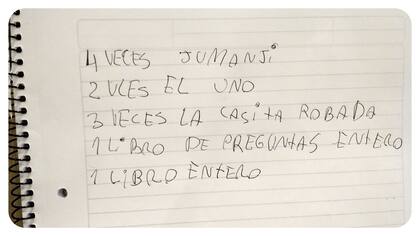 4 VECES JUMANJI
2 VCES EL UNO
3 VECES LA CASITA ROBADA
1 LIBRO DE PREGUNTAS ENTERO
1 LIBRO ENTERO